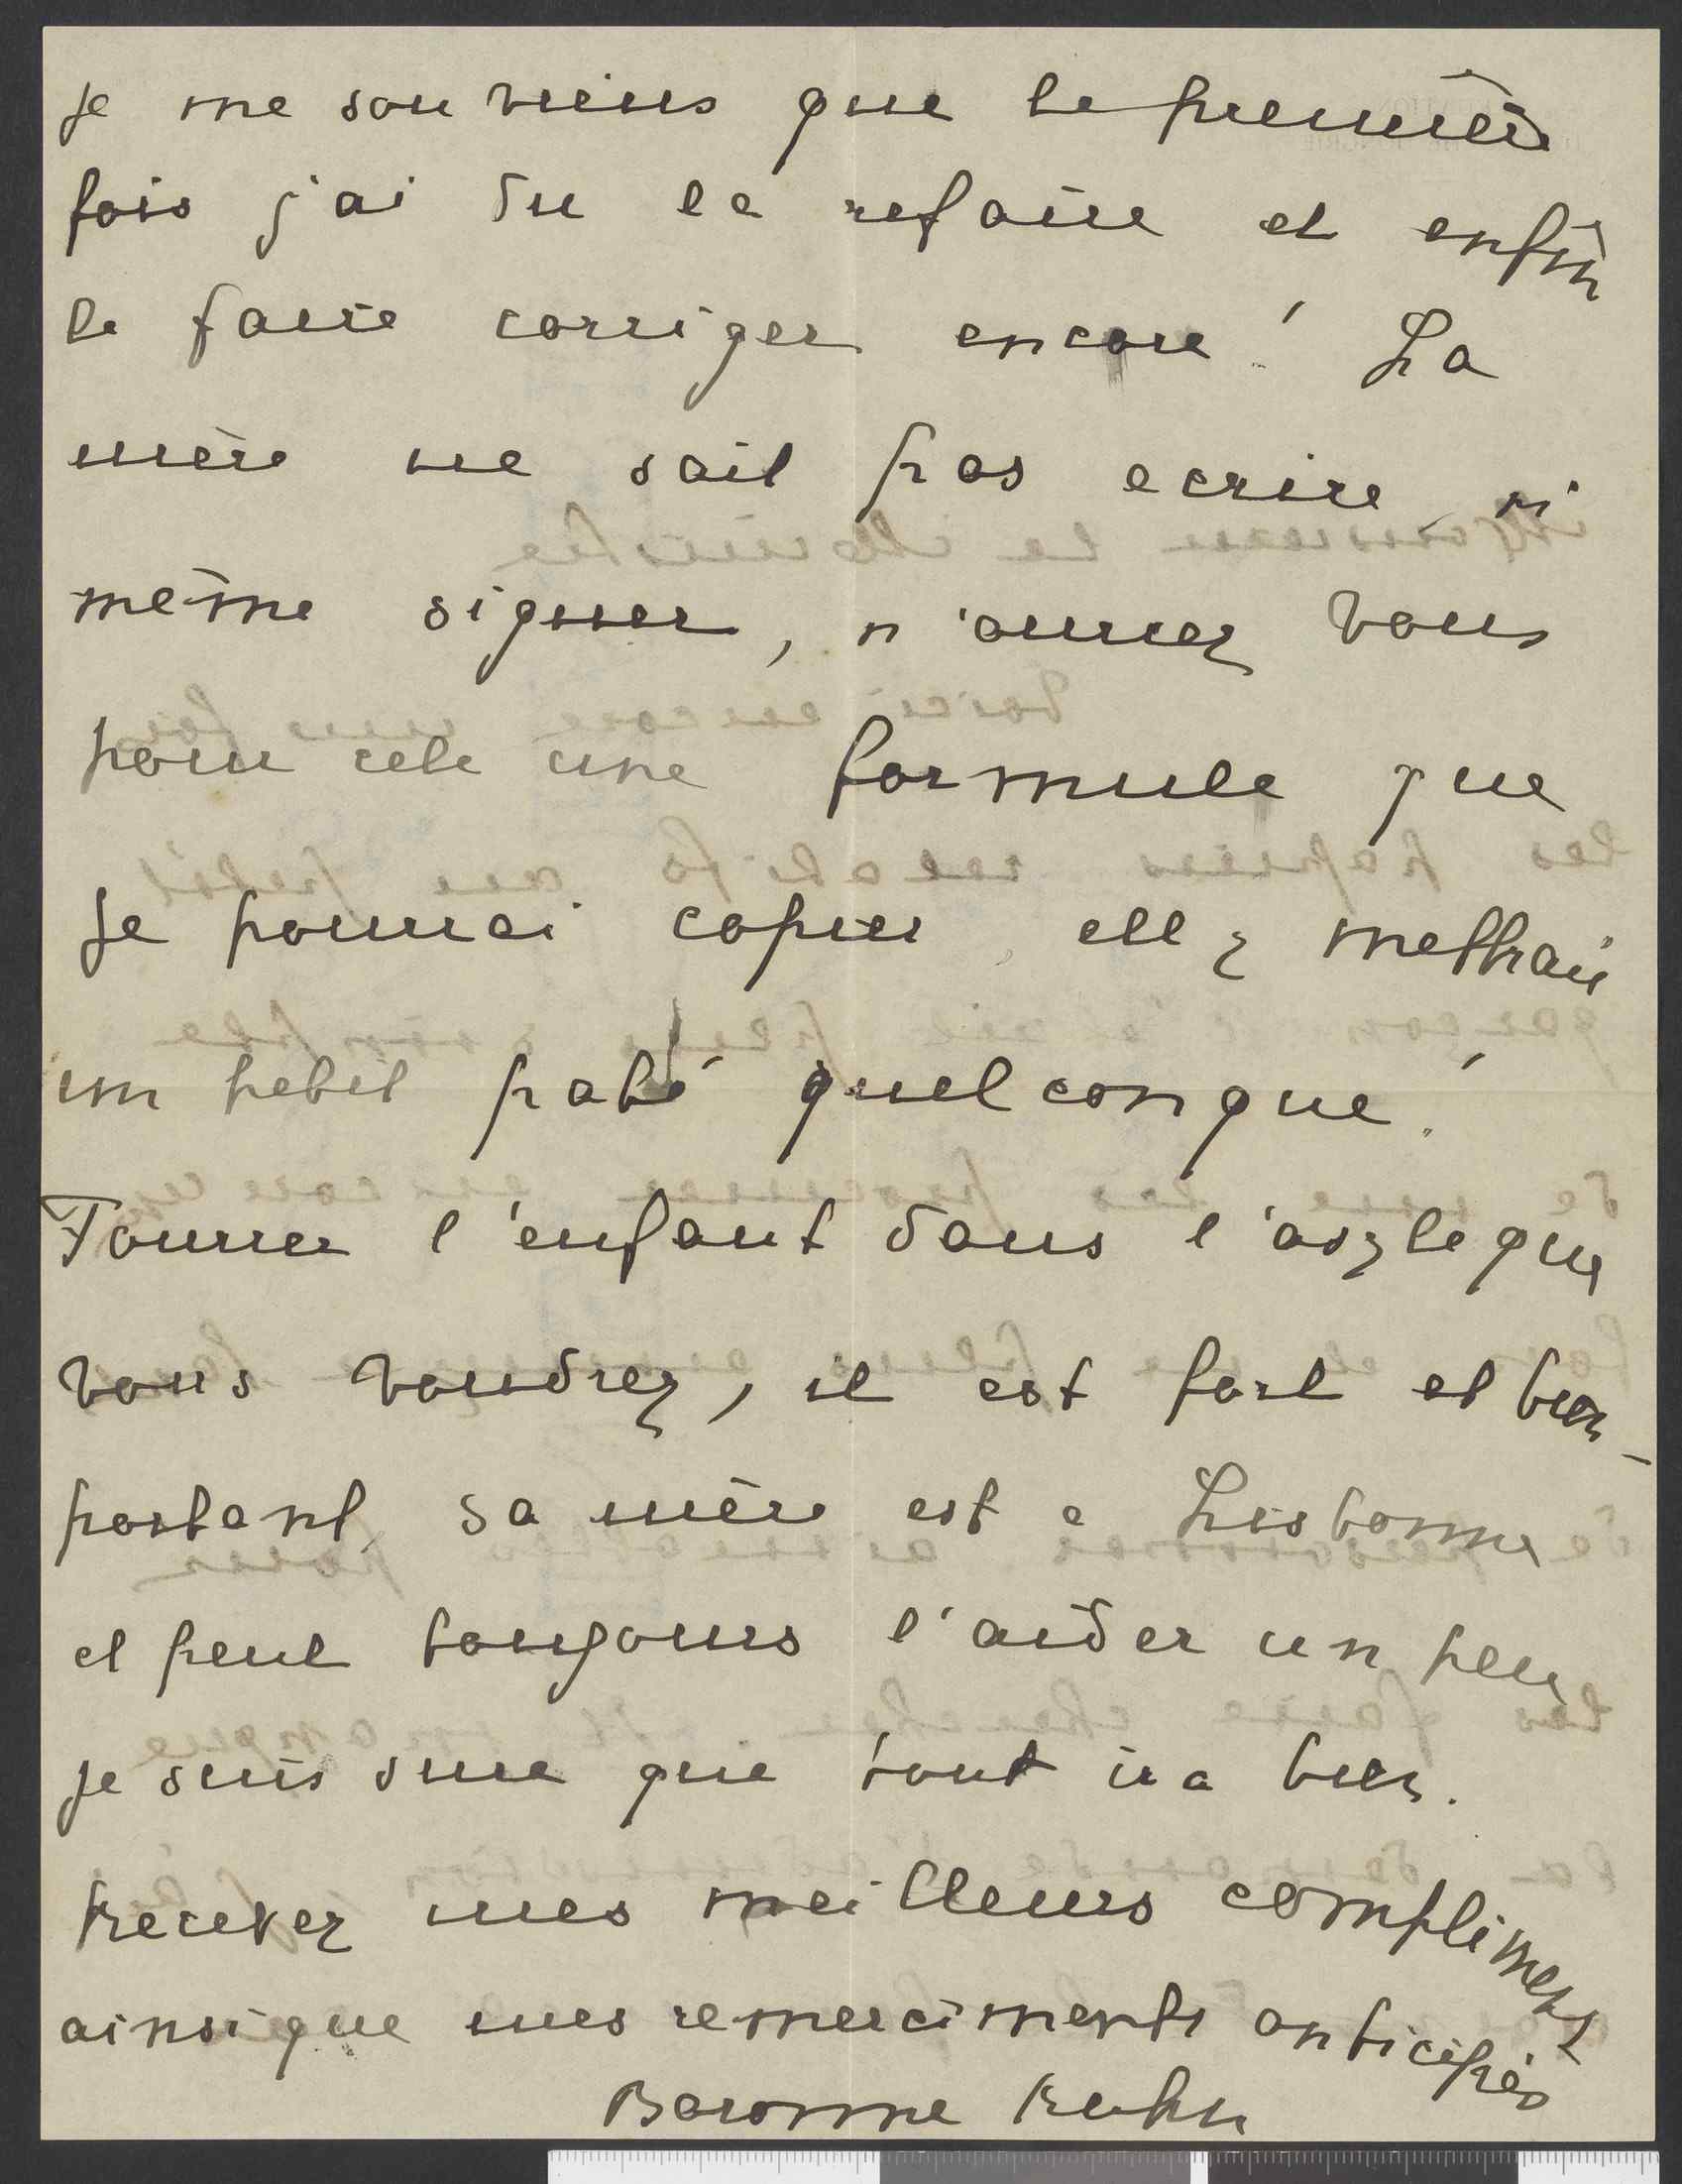 je me souviens que la première
fois j'ai du la refaire et enfin
la faire corriger encore! La
mère ne sait pas ecrire, ni
même signer, n'aurez vous
pour cela une formule que
je pourrai copier, ell y mettrai
un petit paté quelconque!
Fourrer l'enfant dans l'asyle que
vous voudrez, il est fort et bien-
portant, sa mère est a Lisbonne
et peut toujours l'aider un peu,
je suis sure que tout ira bien.
Recevez mes meilleurs compliments
ainsi que mes remerciments anticipés
Baronne Kuhn